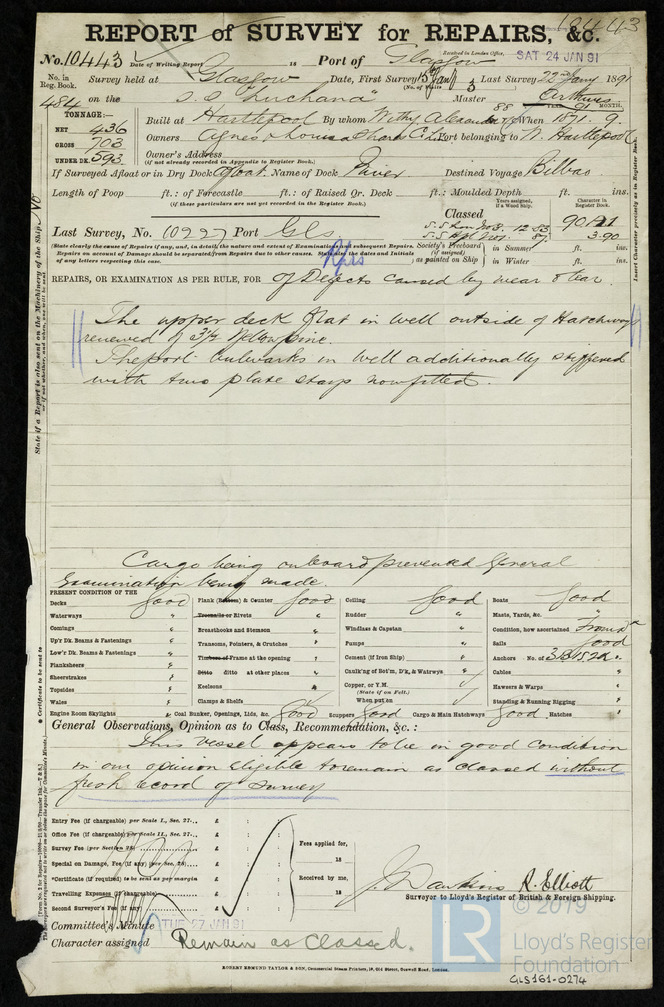 18443
REPORT of SURVEY for REPAIRS, &c.
No. 10443 Date of Writing Report 18 Port of Glasgow Received in London Office, SAT 24 JAN 91
No. in Reg. Book. Survey held at Glasgow Date, First Survey 15th Jany Last Survey 22nd Jany 1891
(No. of Visits 3)
484 on the S.S "Luchana" Master
TONNAGE:—
NET 436
GROSS 703
UNDER DK. 593
Built at Hartlepool By whom Withy Alexander When 1871. 9.
YEAR. MONTH.
Owners Port belonging to W. Hartlepool
Owner's Address
(if not already recorded in Appendix to Register Book.)
If Surveyed Afloat or in Dry Dock Afloat Name of Dock River Destined Voyage Bilbao
Length of Poop ft.: of Forecastle ft.: of Raised Qr. Deck ft.: Moulded Depth ft. ins.
(if these particulars are not yet recorded in the Register Book.)
Classed
Years assigned, if a Wood Ship.
Character in Register Book.
Last Survey, No. 10227 Port Gls. 90A1
3.90
(State clearly the cause of Repairs if any, and, in detail, the nature and extent of Examinations and subsequent Repairs.
Repairs on account of Damage should be separated from Repairs due to other causes. State also the dates and Initials
of any letters respecting this case.
Rprs
Society's Freeboard (if assigned) as painted on Ship in Summer ft. ins.
in Winter ft. ins.
REPAIRS, OR EXAMINATION AS PER RULE, FOR of Defects caused by wear & tear.
The upper deck flat in well outside of Hatchways
renewed of 3½ Yellow pine.
The port bulwarks in well additionally stiffened
with two plate stays now fitted.
Cargo being onboard prevented General
Examination being made.
PRESENT CONDITION OF THE
Decks Good
Waterways "
Comings "
Up'r Dk. Beams & Fastenings "
Low'r Dk. Beams & Fastenings "
Planksheers "
Sheerstrakes "
Topsides "
Wales "
Engine Room Skylights "
Plank (Bottom) & Counter Good
Treenails or Rivets "
Breasthooks and Stemson "
Transoms, Pointers, & Crutches "
Timbers or Frame at the opening "
Ditto ditto at other places "
Keelsons "
Clamps & Shelfs
Coal Bunker, Openings, Lids, &c. Good
Ceiling Good
Rudder "
Windlass & Capstan "
Pumps "
Cement (if Iron Ship) "
Caulk'ng of Bot'm, D'k, & Watrwys
Copper, or Y.M.
(State if on Felt.)
When put on
Scuppers Good Cargo & Main Hatchways Good Hatches "
Boats Good
Masts, Yards, &c. "
Condition, how ascertained From Dk
Sails Good
Anchors - No. of 3B 1S 2K.
Cables "
Hawsers & Warps "
Standing & Running Rigging "
General Observations, Opinion as to Class, Recommendation, &c. :
This vessel appears to be in good condition
in our opinion eligible to remain as classed without
fresh record of survey
Entry Fee (if chargeable) per Scale I., Sec. 27... £ : :
Office Fee (if chargeable) per Scale II., Sec. 27... £ : :
Survey Fee (per Section 28) £ : :
Special on Damage, Fee (if any) (per Sec. 28) £ : :
Certificate (if required) to be sent as per margin £ : :
Travelling Expenses (if chargeable) £ : :
Second Surveyor's Fee (if any) £ : :
Fees applied for,
18
Received by me,
18
J. Dawkins R. Elliott
Surveyor to Lloyd's Register of British & Foreign Shipping.
Committee's Minute TUE 27 JAN 91
Character assigned Remain as Classed.
ROBERT EDMUND TAYLOR & SON, Commercial Steam Printers, 19, Old Street, Goswell Road, London.
© 2019
LR Lloyd's Register
Foundation
GLS161-0274
State if a Report is also sent on the Machinery of the Ship. No
Insert Character precisely as in Register Book.
Certificate to be sent to